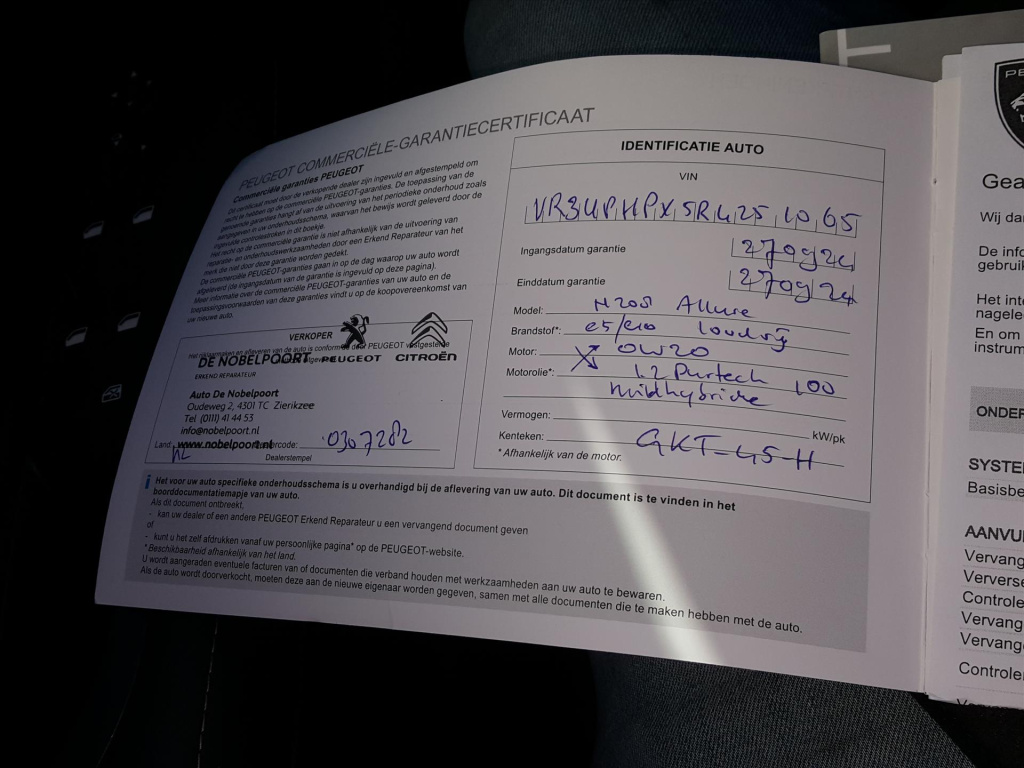 PEUGEOT COMMERCIËLE-GARANTIECERTIFICAAT
Commerciële garanties PEUGEOT
Dit certificaat moet door de verkopende dealer zijn ingevuld en afgestempeld om
recht te hebben op de commerciële PEUGEOT-garanties. De toepassing van de
genoemde garanties hangt af van de uitvoering van het periodieke onderhoud zoals
aangegeven in uw onderhoudsschema, waarvan het bewijs wordt geleverd door de
ingevulde controlestroken in dit boekje.
Het recht op de commerciële garantie is niet afhankelijk van de uitvoering van
reparatie- en onderhoudswerkzaamheden door een Erkend Reparateur van het
merk die niet door deze garantie worden gedekt.
De commerciële PEUGEOT-garanties gaan in op de dag waarop uw auto wordt
afgeleverd (de ingangsdatum van de garantie is ingevuld op deze pagina).
Meer informatie over de commerciële PEUGEOT-garanties van uw auto en de
toepassingsvoorwaarden van deze garanties vindt u op de koopovereenkomst van
uw nieuwe auto.
VERKOPER
Het rijklaarmaken en afleveren van de auto is conform de door PEUGEOT vastgestelde
DE NOBELPOORT PEUGEOT CITROËN
ERKEND REPARATEUR
Auto De Nobelpoort
Oudeweg 2, 4301 TC Zierikzee
Tel (0111) 41 44 53
info@nobelpoort.nl
www.nobelpoort.nl
Land: NL 0307282
Dealerstempel
IDENTIFICATIE AUTO
VIN
VR3UPHPX5R4251065
Ingangsdatum garantie 270924
Einddatum garantie 270924
Model: N208 Allure
Brandstof*: e5/e10 loodvrij
Motor: 0W20
Motorolie*: 1.2 Puretech 100
mildhybride
Vermogen: kW/pk
Kenteken: GKT-45-H
* Afhankelijk van de motor.
i Het voor uw auto specifieke onderhoudsschema is u overhandigd bij de aflevering van uw auto. Dit document is te vinden in het
boorddocumentatiemapje van uw auto.
Als dit document ontbreekt,
- kan uw dealer of een andere PEUGEOT Erkend Reparateur u een vervangend document geven
of
- kunt u het zelf afdrukken vanaf uw persoonlijke pagina* op de PEUGEOT-website.
* Beschikbaarheid afhankelijk van het land.
U wordt aangeraden eventuele facturen van of documenten die verband houden met werkzaamheden aan uw auto te bewaren.
Als de auto wordt doorverkocht, moeten deze aan de nieuwe eigenaar worden gegeven, samen met alle documenten die te maken hebben met de auto.
PE
Gea
Wij da
De info
gebruik
Het inte
nagele
En om
instrum
ONDER
SYSTE
Basisbe
AANVU
Vervang
Ververse
Controle
Vervang
Vervange
Controle